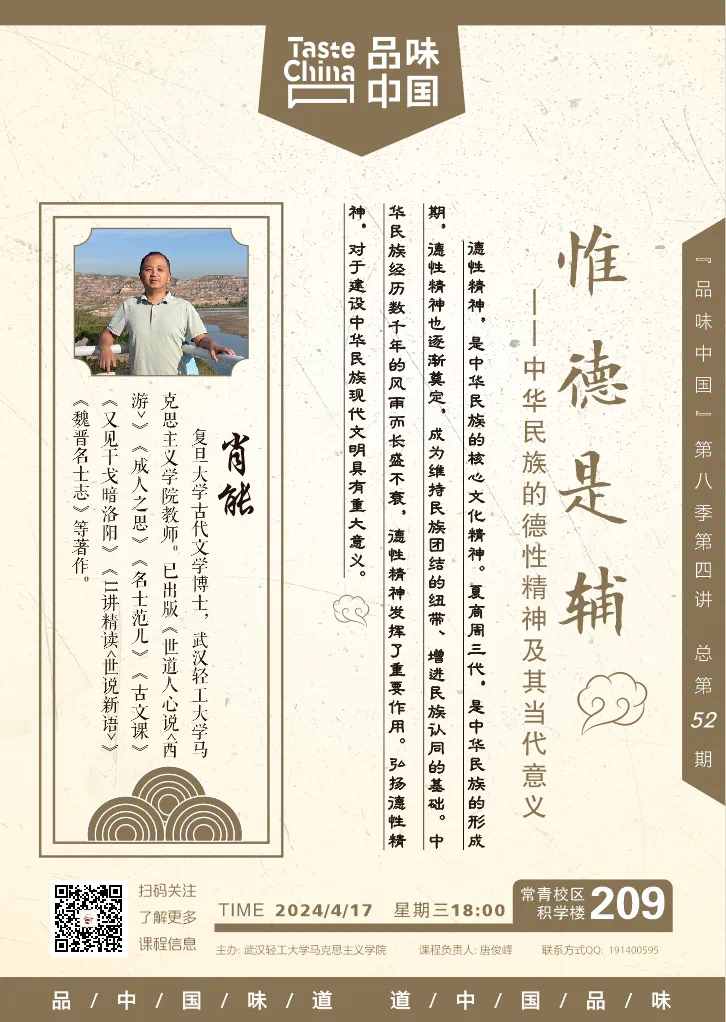 Taste
China
品味
中国
『品味中国』第八季第四讲 总第52期
惟德是辅
——中华民族的德性精神及其当代意义
德性精神，是中华民族的核心文化精神。夏商周三代，是中华民族的形成
期，德性精神也逐渐奠定，成为维持民族团结的纽带、增进民族认同的基础。中
华民族经历数千年的风雨而长盛不衰，德性精神发挥了重要作用。弘扬德性精
神，对于建设中华民族现代文明具有重大意义。
肖能
复旦大学古代文学博士，武汉轻工大学马
克思主义学院教师。已出版《世道人心说<西
游>》《成人之思》《名士范儿》《古文课》
《又见干戈暗洛阳》《11讲精读<世说新语>》
《魏晋名士志》等著作。
扫码关注
了解更多
课程信息
TIME 2024/4/17 星期三18:00
常青校区
积学楼
209
主办: 武汉轻工大学马克思主义学院 课程负责人: 唐俊峰 联系方式QQ: 191400595
品 / 中 / 国 / 味 / 道 道 / 中 / 国 / 品 / 味